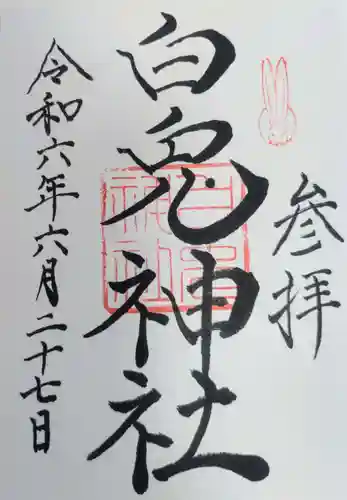 参拝
白兎神社
白兎神社
令和六年六月二十七日